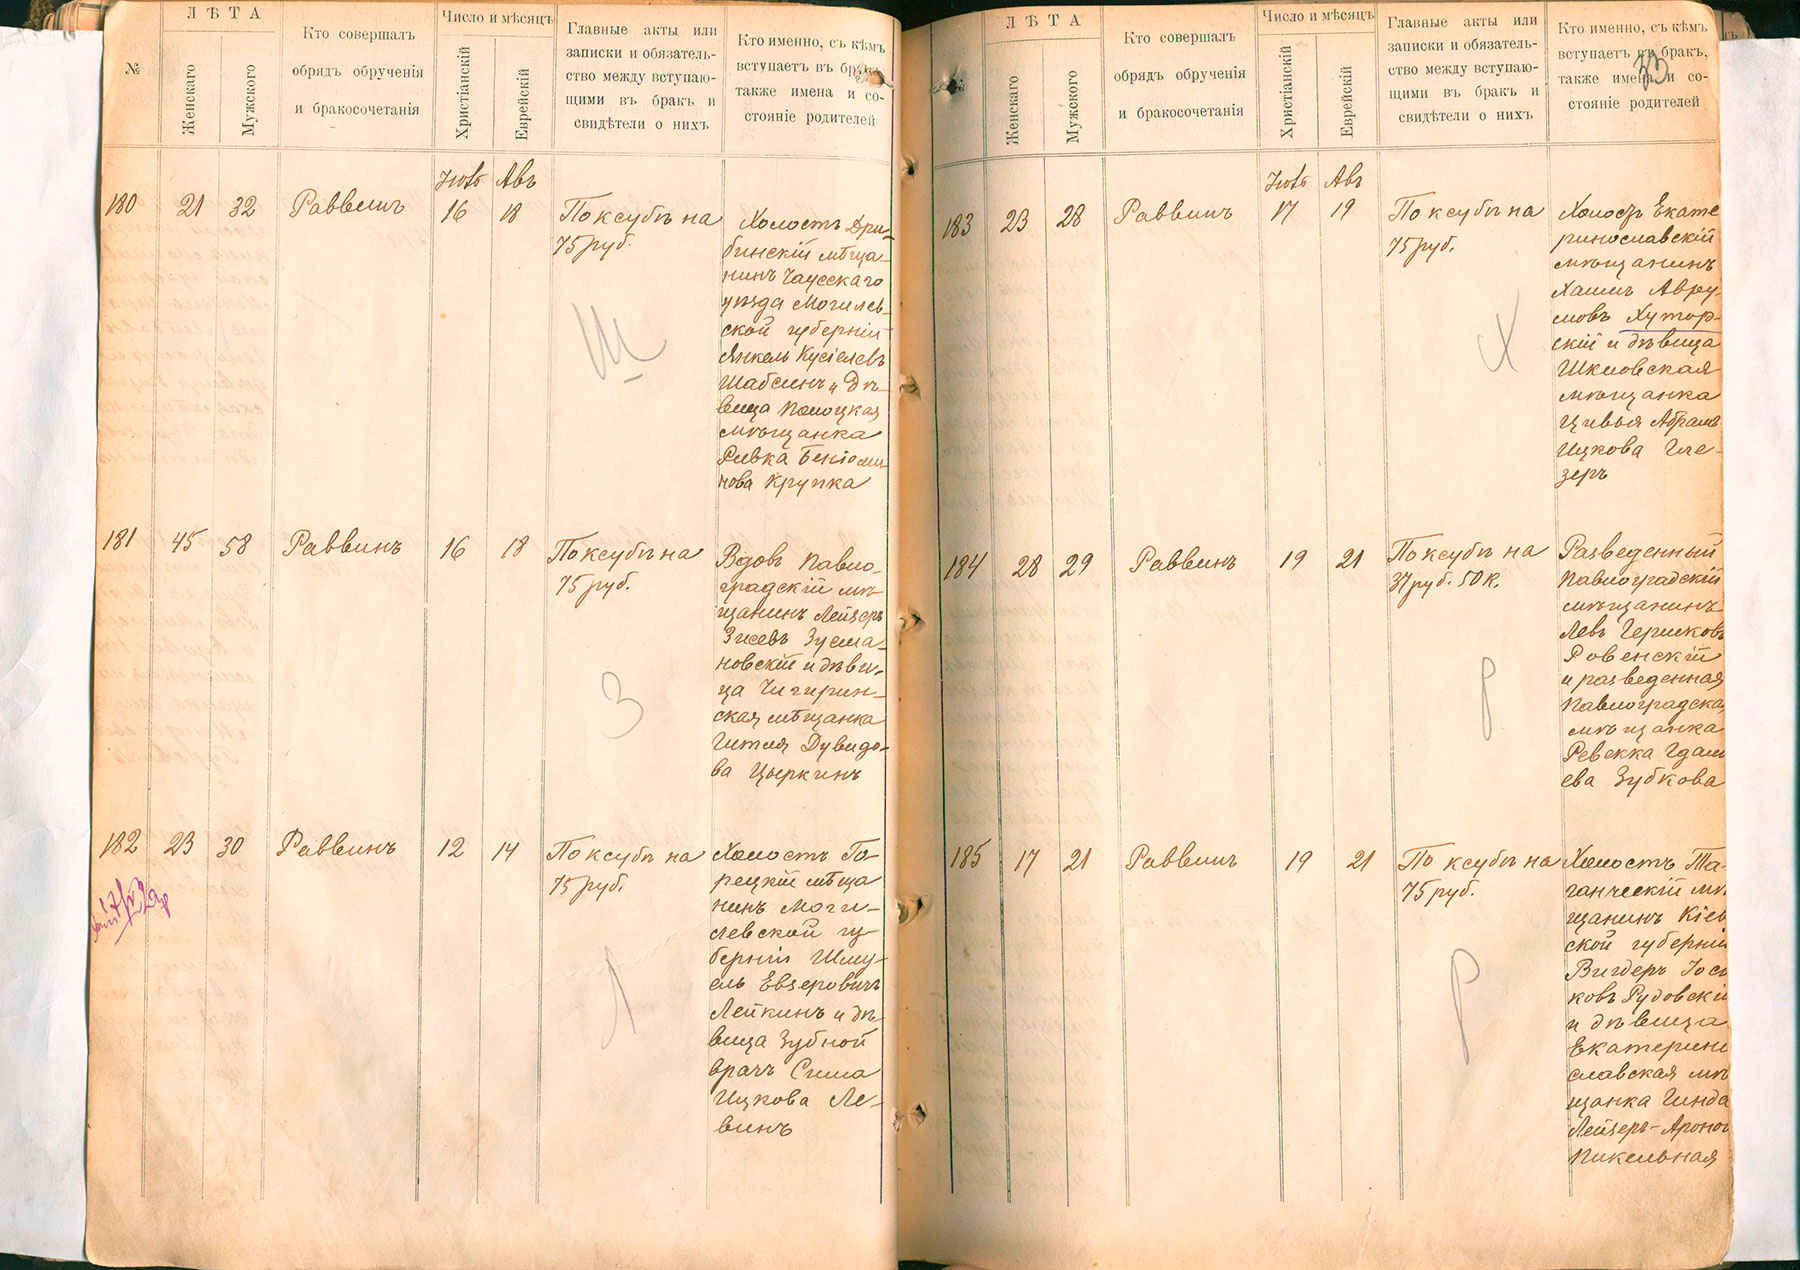 №
ЛѢТА
Женскаго
Мужского
Кто совершалъ
обрядъ обрученія
и бракосочетанія
Число и мѣсяцъ
Христіанскій
Еврейскій
Главные акты или
записки и обязатель-
ство между вступаю-
щими въ бракъ и
свидѣтели о нихъ
Кто именно, съ кѣмъ
вступаетъ въ бракъ,
также имена и со-
стояніе родителей
Авъ
180 21 32 Раввинъ 16 18
По ксубъ на
75 руб.
Холостъ Дри-
бинскій мѣща-
нинъ Чаусскаго
уѣзда Могилев-
ской губерніи
Янкель Кусіелевъ
Шабсинъ и дѣ-
вица Полоцкая
мѣщанка
Ривка Беніоми-
нова Крупка
Ш
181 45 58 Раввинъ 16 18
По ксубъ на
75 руб.
Вдовъ Павло-
градскій мѣ-
щанинъ Лейзеръ
Зисевъ Зусма-
новскій и дѣви-
ца Чигирин-
ская мѣщанка
Гитля Дувидо-
ва Цыркинъ
З
182 23 30 Раввинъ 12 14
По ксубъ на
75 руб.
Холостъ Го-
рецкій мѣща
нинъ Моги-
левской гу-
берніи Шму-
ель Евзеровичъ
Лейкинъ и дѣ-
вица Зубной
врачъ Сима
Ицкова Ле-
винъ
Л
ЛѢТА
Женскаго
Мужского
Кто совершалъ
обрядъ обрученія
и бракосочетанія
Число и мѣсяцъ
Христіанскій
Еврейскій
Главные акты или
записки и обязатель-
ство между вступаю-
щими въ бракъ и
свидѣтели о нихъ
Кто именно, съ кѣмъ
вступаетъ въ бракъ,
также имена и со-
стояніе родителей
33
Авъ
183 23 28 Раввинъ 17 19
По ксубъ на
75 руб.
Холостъ Екате
ринославскій
мѣщанинъ
Хаимъ Авру-
мовъ Хутор-
скій и дѣвица
Шкловская
мѣщанка
Цивья Абрамъ
Ицкова Гле-
зеръ
Х
184 28 29 Раввинъ 19 21
По ксубъ на
37 руб. 50 к.
Разведенный
Павлоградскій
мѣщанинъ
Левъ Гершковъ
Ровенскій
и разведенная
Павлоградская
мѣщанка
Ревекка Гдаль
ева Зубкова
Р
185 17 21 Раввинъ 19 21
По ксубъ на
75 руб.
Холостъ Та-
ганческій мѣ
щанинъ Кіев
ской губерніи
Вигдеръ Іось
ковъ Рудовскій
и дѣвица
Екатерино
славская мѣ
щанка Гинда
Лейзеръ-Аронов
Пикельная
Р